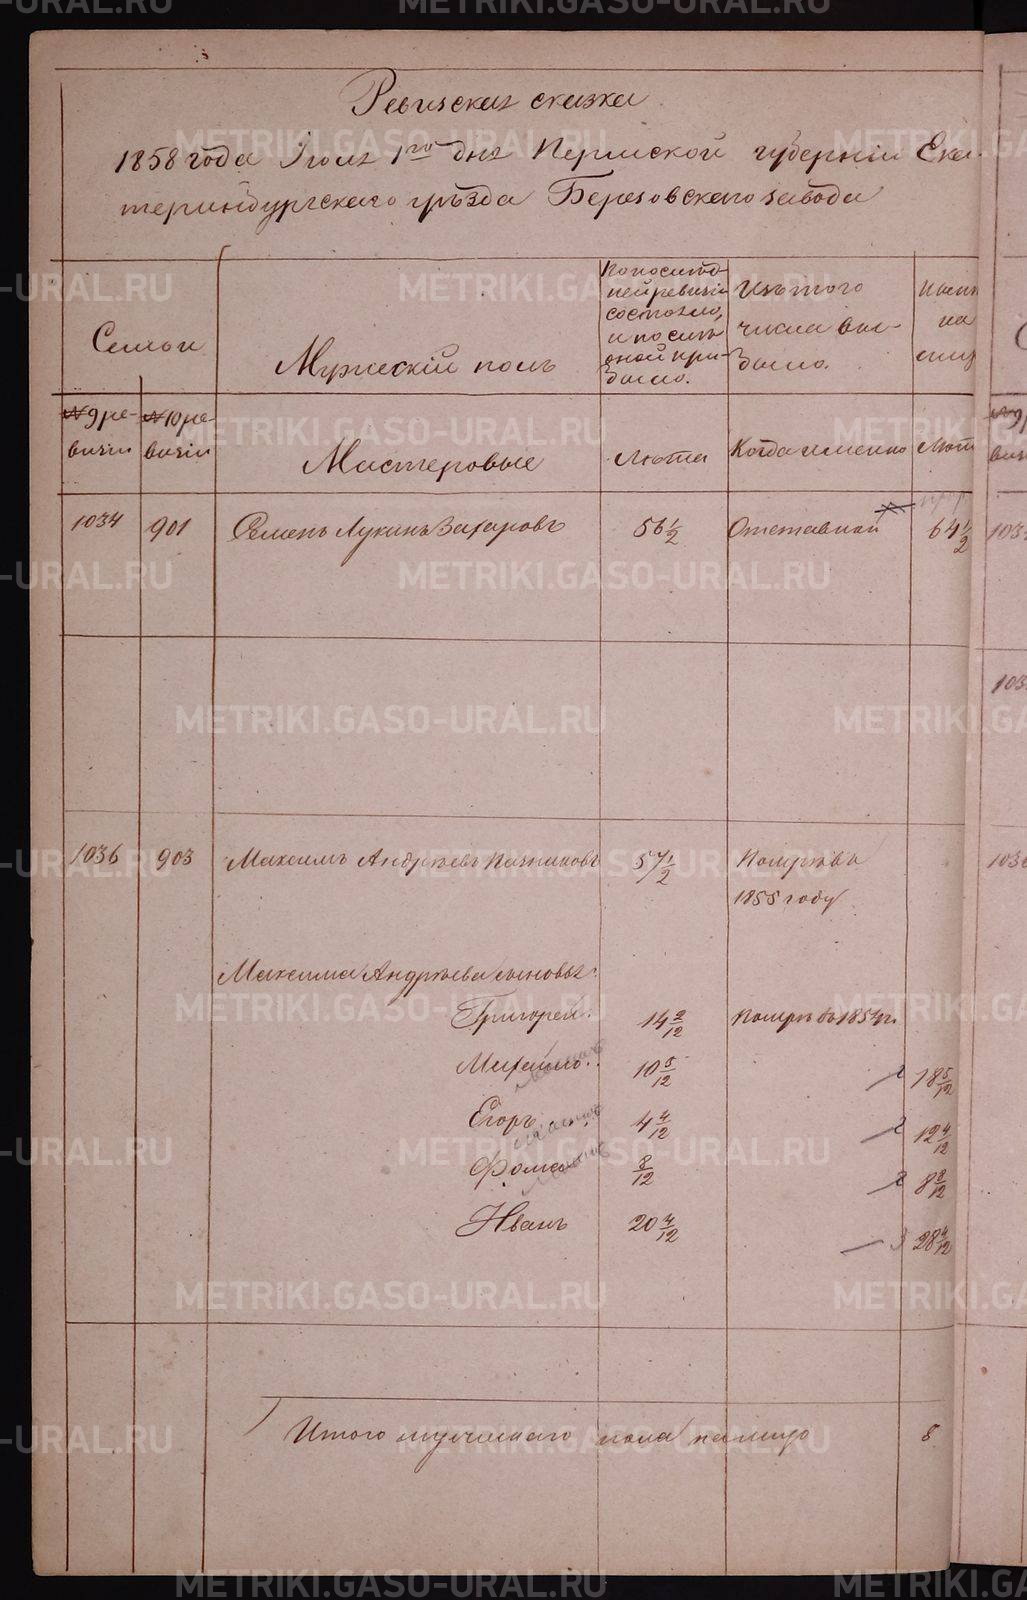 Ревизская сказка
1858 года Июля 1го дня Пермской губерніи Ека-
теринбургскаго уѣзда Березовскаго завода
Семьи
Мужескій полъ
По послѣд-
ней ревизіи
состояло,
и послѣ
оной при-
было.
Изъ того
числа вы-
было.
Нынѣ
на
лицо
№ 9 ре-
визіи
№ 10 ре-
визіи
Мастеровые
Лѣта
Когда именно
Лѣта
1034 901 Семенъ Лукинъ Захаровъ 56 1/2 Отставной 64 1/2
1036 903 Максимъ Андреевъ 57 1/2 Померъ въ
1855 году
Максима Андреева сыновья:
Григорей 14 2/12 Померъ въ 1854 г.
Михайло 10 5/12 2 18 5/12
Егоръ 4 4/12 2 12 4/12
Фома 8/12 2 8 8/12
Иванъ 20 4/12 3 28 4/12
Итого мужескаго пола на лицо 8
METRIKI.GASO-URAL.RU